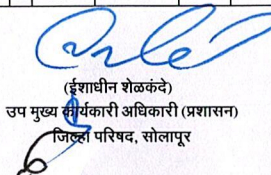 (ईशाधीन शेळकंदे)
उप मुख्य कार्यकारी अधिकारी (प्रशासन)
जिल्हा परिषद, सोलापूर